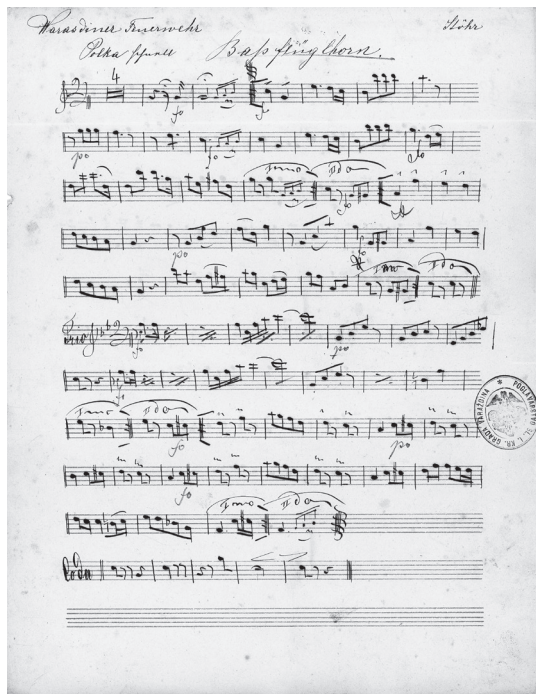 Warasdiner Feuerwehr Stöhr
Polka schnell Baßflüglhorn.
4
fo fo
po fo fo
Imo IIdo
fo
po
Imo IIdo
Trio
fo po
Imo IIdo
fo po
fo
Imo IIdo
Coda
POGLAVARSTVO SL. I KR. GRADA VARAŽDINA